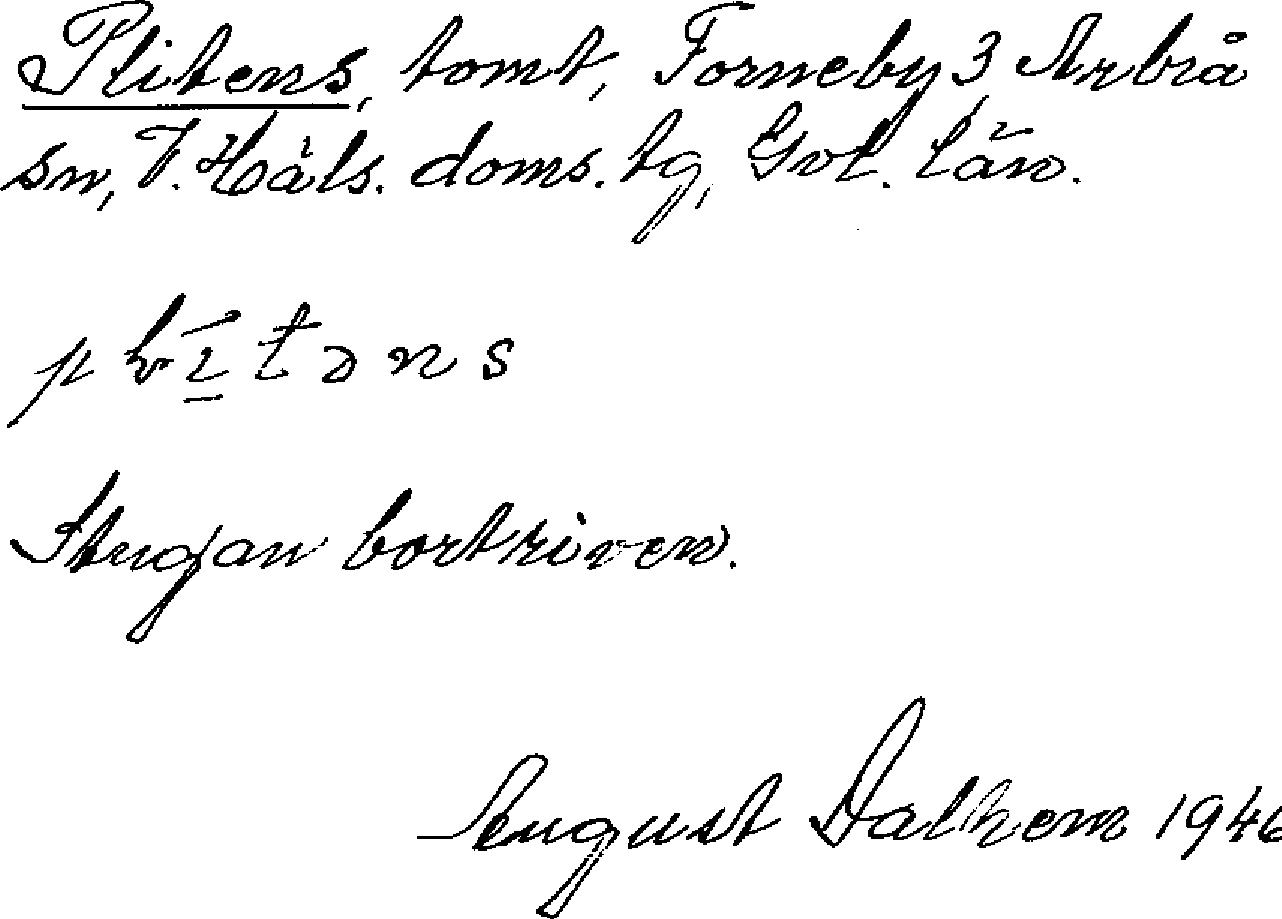 Plitens, tomt, Forneby 3, Arbrå
sn, V. Häls. doms. tg, Gvl. län.
Stugan bortriven.
August Dalhem 1946